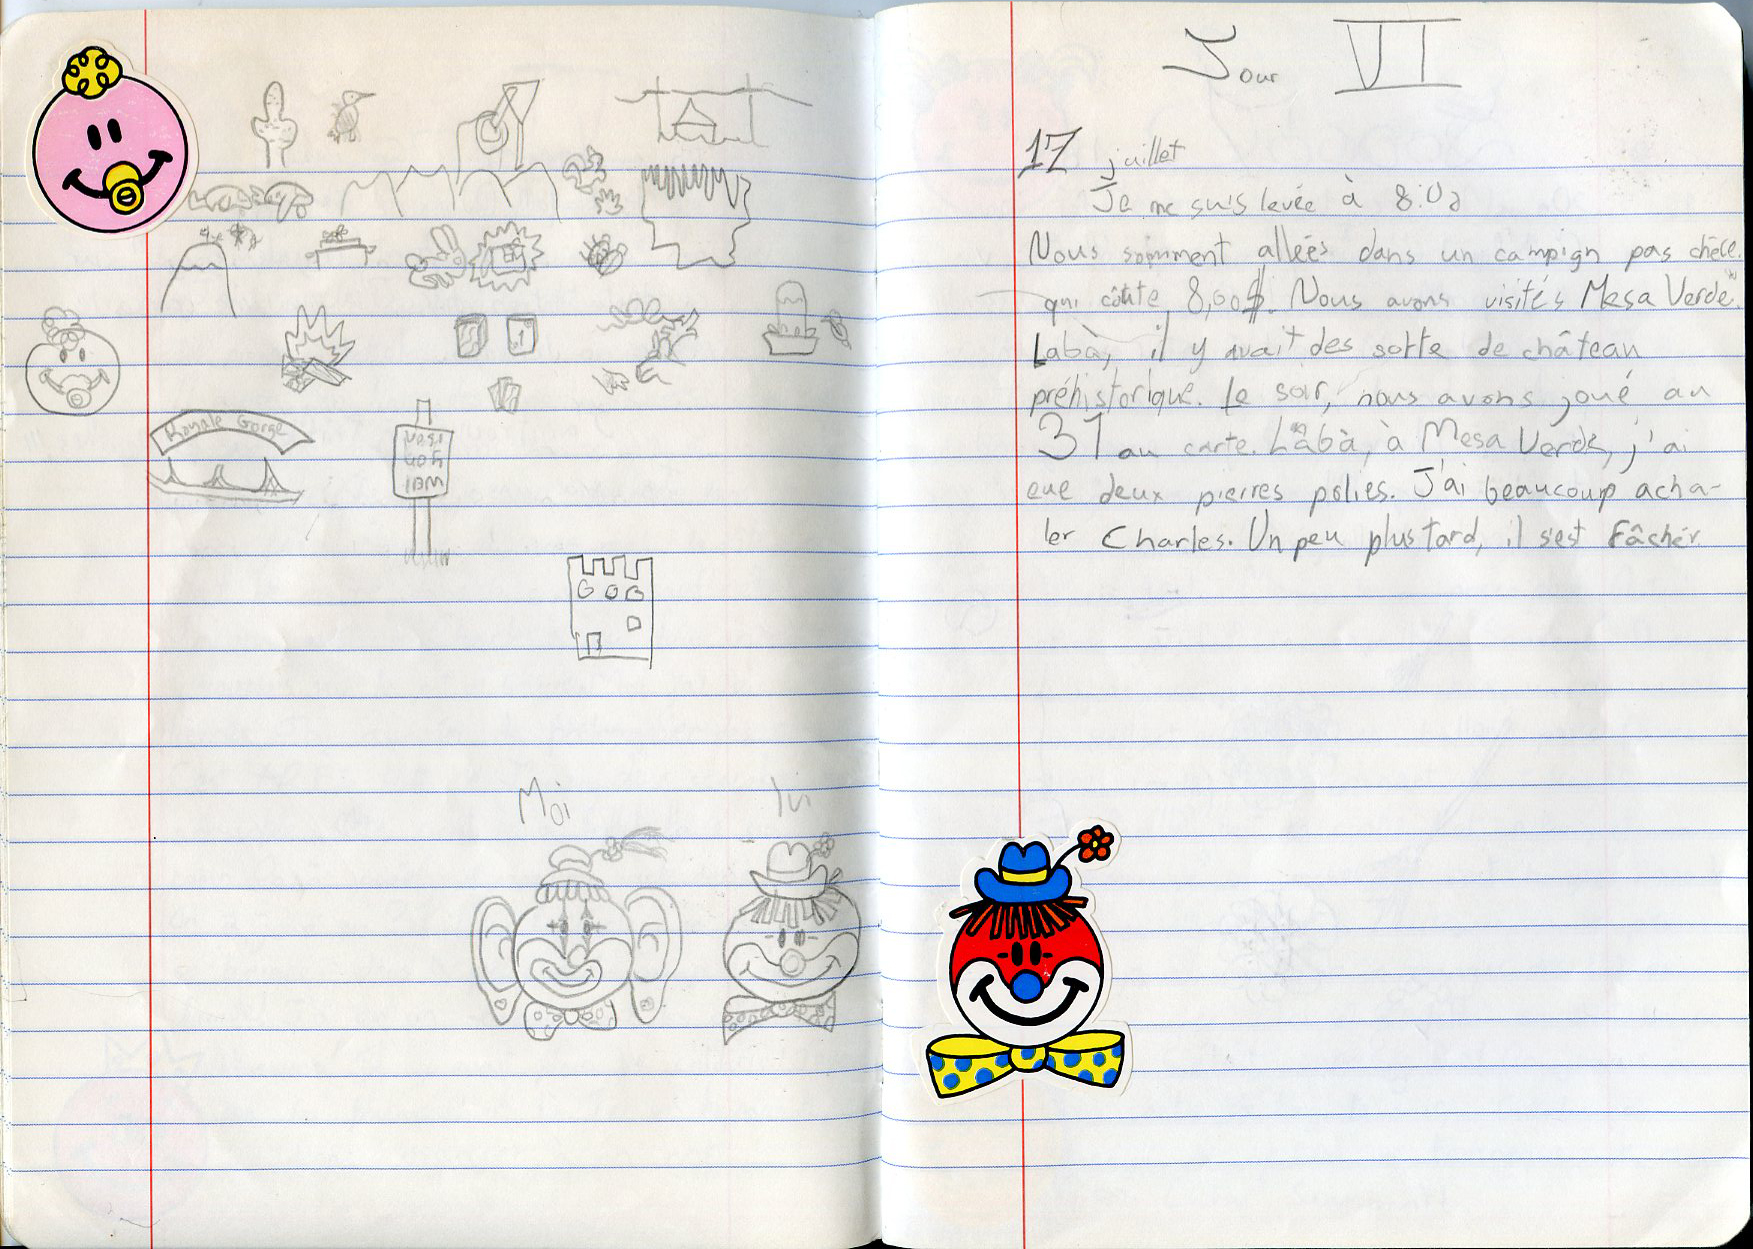 Royale Gorge
IBM
GOG
Moi
lui
Jour VI
17 juillet
Je me suis levée à 8:00
Nous somment alleés dans un campign pas chère
qui coûte 8,00$. Nous avons visités Mesa Verde.
Labà, il y avait des sorte de château
préhistorique. Le soir, nous avons joué au
31 au carte. Labà, à Mesa Verde, j'ai
eue deux pierres polies. J'ai beaucoup acha-
ler Charles. Un peu plus tard, il s'est fâchér